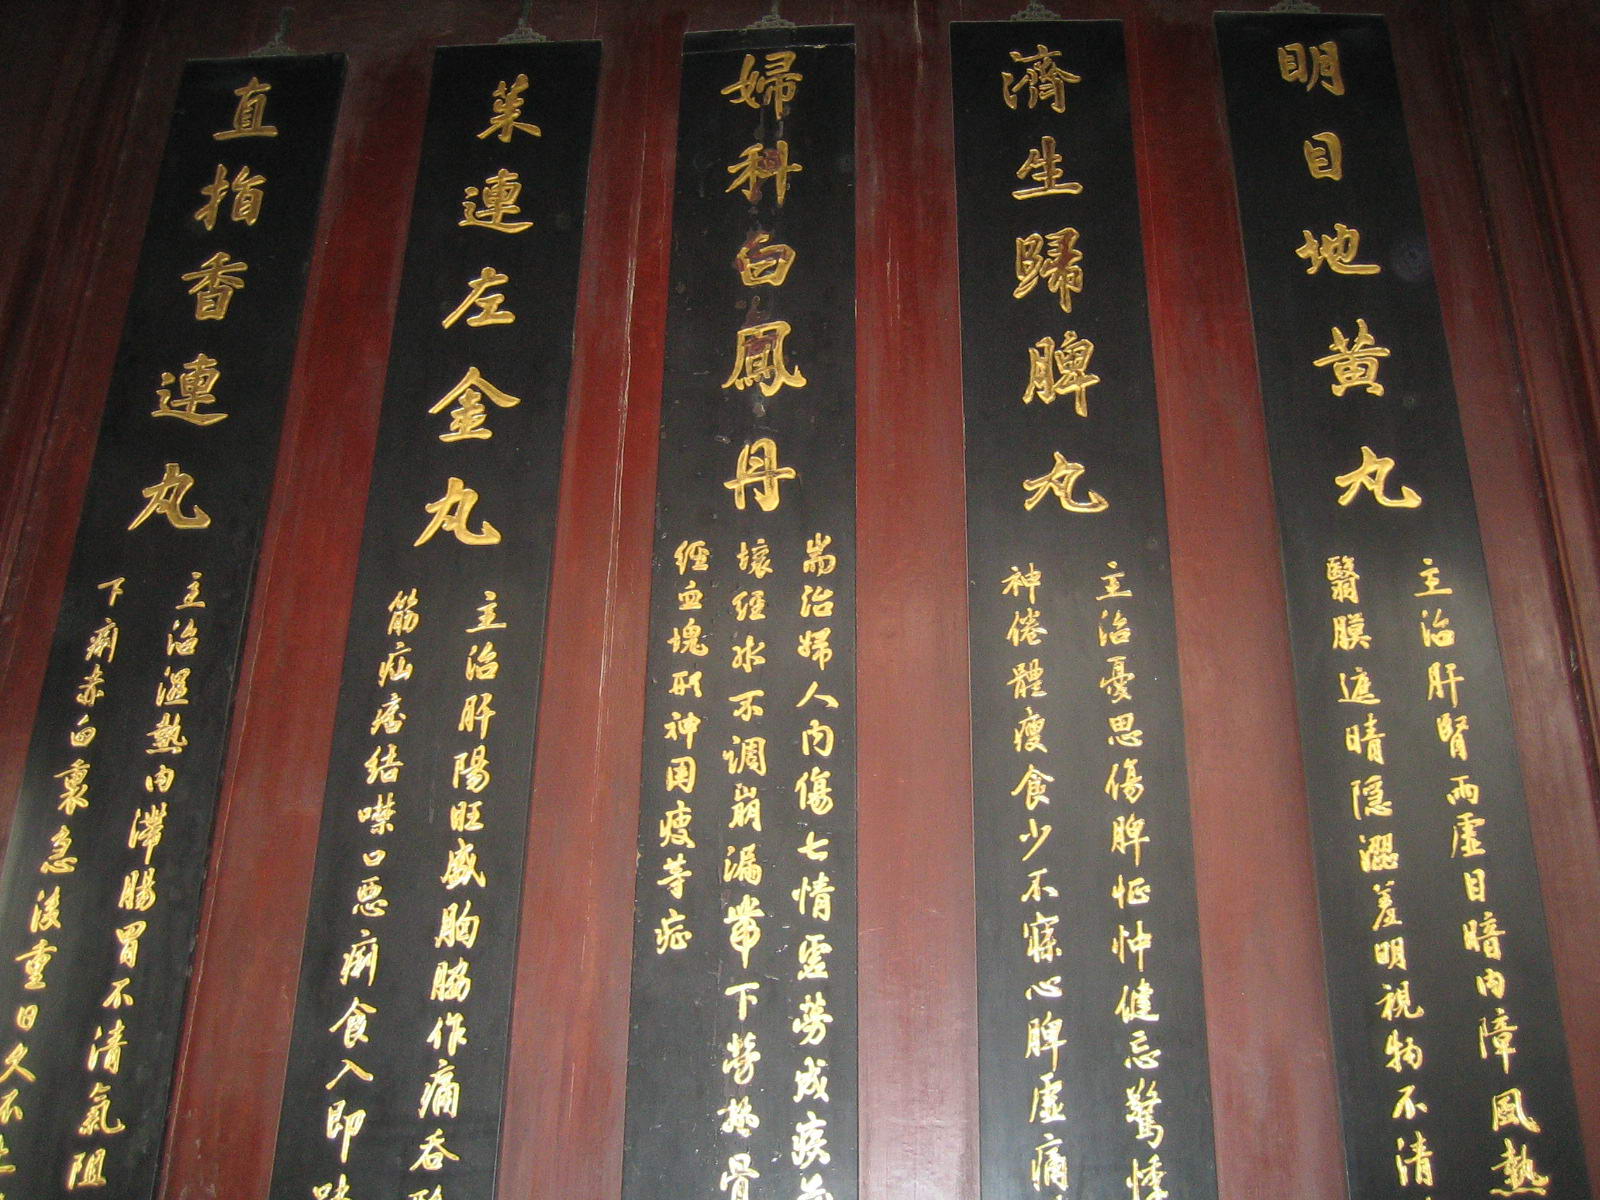 明目地黃丸
主治肝腎兩虛目暗內障風熱
翳膜遮睛隱澀羞明視物不清
濟生歸脾丸
主治憂思傷脾怔忡健忘驚悸
神倦體瘦食少不寐心脾虛痛
婦科白鳳丹
耑治婦人內傷七情虛勞成疾
壞經水不調崩漏帶下勞熱骨
經血塊形神困瘦等症
茱連左金丸
主治肝陽旺盛胸脇作痛吞酸
筋疝痞結噤口惡痢食入即
直指香連丸
主治濕熱內滯腸胃不清氣阻
下痢赤白裏急後重日久不止